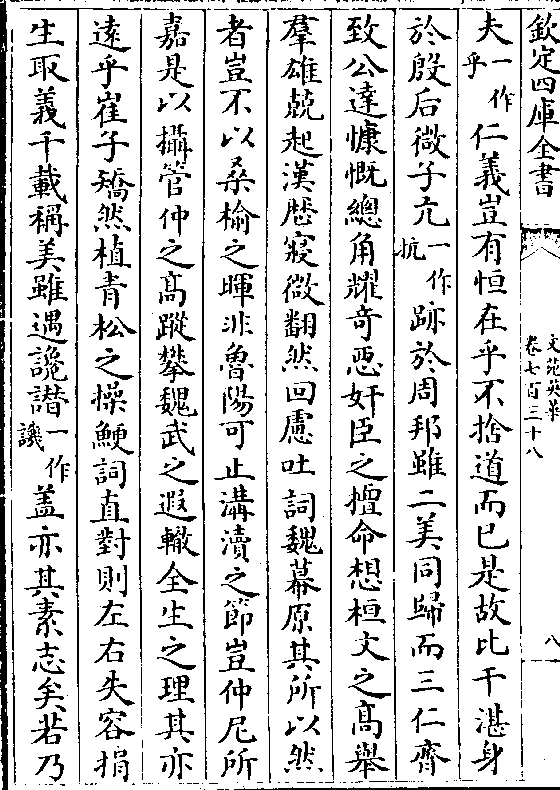 欽定四庫全書
文苑英華
卷七百三十八
八
夫一作乎仁義豈有恒在乎不捨道而已是故比干湛身
於殷后微子亢一作抗跡於周邦雖二美同歸而三仁齊
致公達慷慨總角耀奇惡奸臣之擅命想桓文之高舉
羣雄兢起漢歴寖微翻然回慮吐詞魏幕原其所以然
者豈不以桑榆之暉非魯陽可止溝瀆之節豈仲尼所
嘉是以攝管仲之高蹤攀魏武之遐轍全生之理其亦
遠乎崔子矯然植青松之操鯁詞直對則左右失容捐
生取義千載稱美雖遇讒譖一作譏盖亦其素志矣若乃